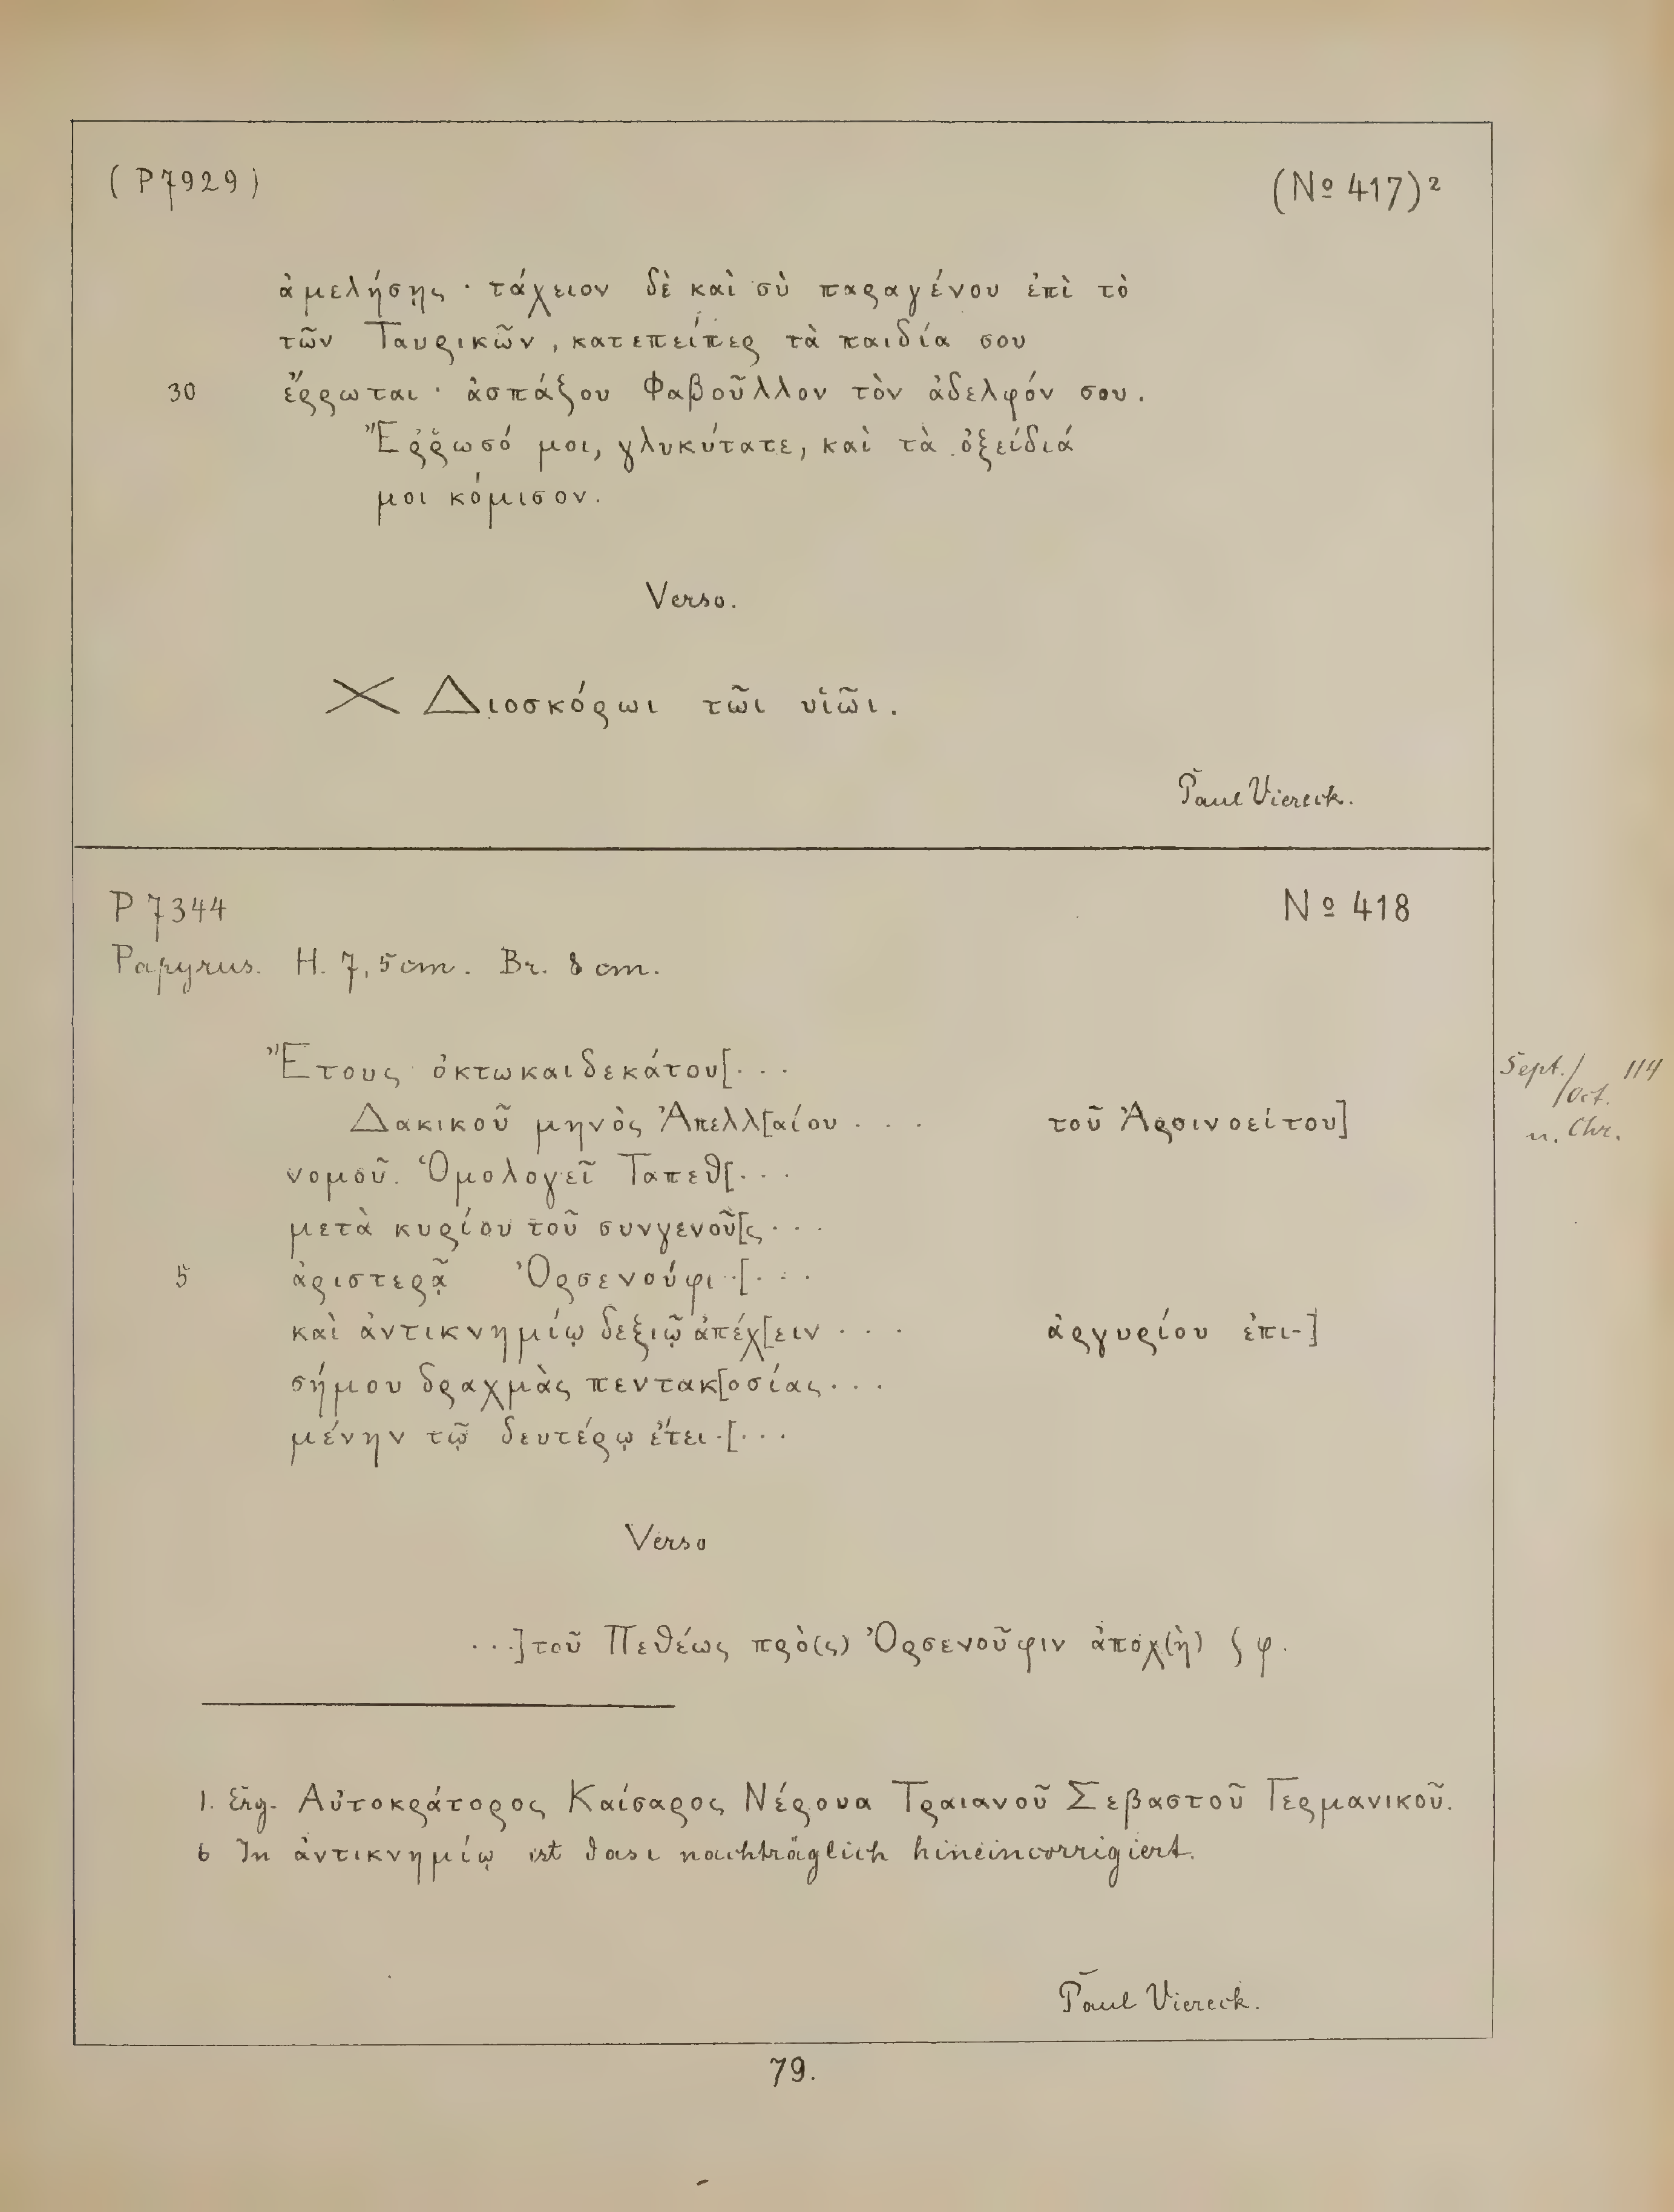 (P 7929) (No 417)²
ἀμελήσῃς · τάχειον δὲ καὶ σὺ παραγένου ἐπὶ τὸ
τῶν Ταυρικῶν, κατεπείπερ τὰ παιδία σου
30 ἔρρωται · ἀσπάξου Φαβοῦλλον τὸν ἀδελφόν σου.
Ἔρρωσό μοι, γλυκύτατε, καὶ τὰ ὀξείδιά
μοι κόμισον.
Verso.
Διοσκόρωι τῶι υἱῶι.
Paul Viereck.
P 7344 No 418
Papyrus. H. 7,5 cm. Br. 8 cm.
Ἔτους ὀκτωκαιδεκάτου[· · ·
Δακικοῦ μηνὸς Ἀπελλ[αίου · · · τοῦ Ἀρσινοείτου]
Sept./Oct. 114
n. Chr.
νομοῦ. Ὁμολογεῖ Ταπεθ[· · ·
μετὰ κυρίου τοῦ συνγενοῦ[ς · · ·
5 ἀριστερᾷ Ὀρσενούφι ·[· · ·
καὶ ἀντικνημίῳ δεξιῷ ἀπέχ[ειν · · · ἀργυρίου ἐπι-]
σήμου δραχμὰς πεντακ[οσίας · · ·
μένην τῷ δευτέρῳ ἔτει ·[· · ·
Verso
· · ·]τοῦ Πεθέως πρὸ(ς) Ὀρσενοῦφιν ἀποχ(ὴ) ʃ φ.
1. Erg. Αὐτοκράτορος Καίσαρος Νέρουα Τραιανοῦ Σεβαστοῦ Γερμανικοῦ.
6 In ἀντικνημίῳ ist das ι nachträglich hineincorrigiert.
Paul Viereck.
79.